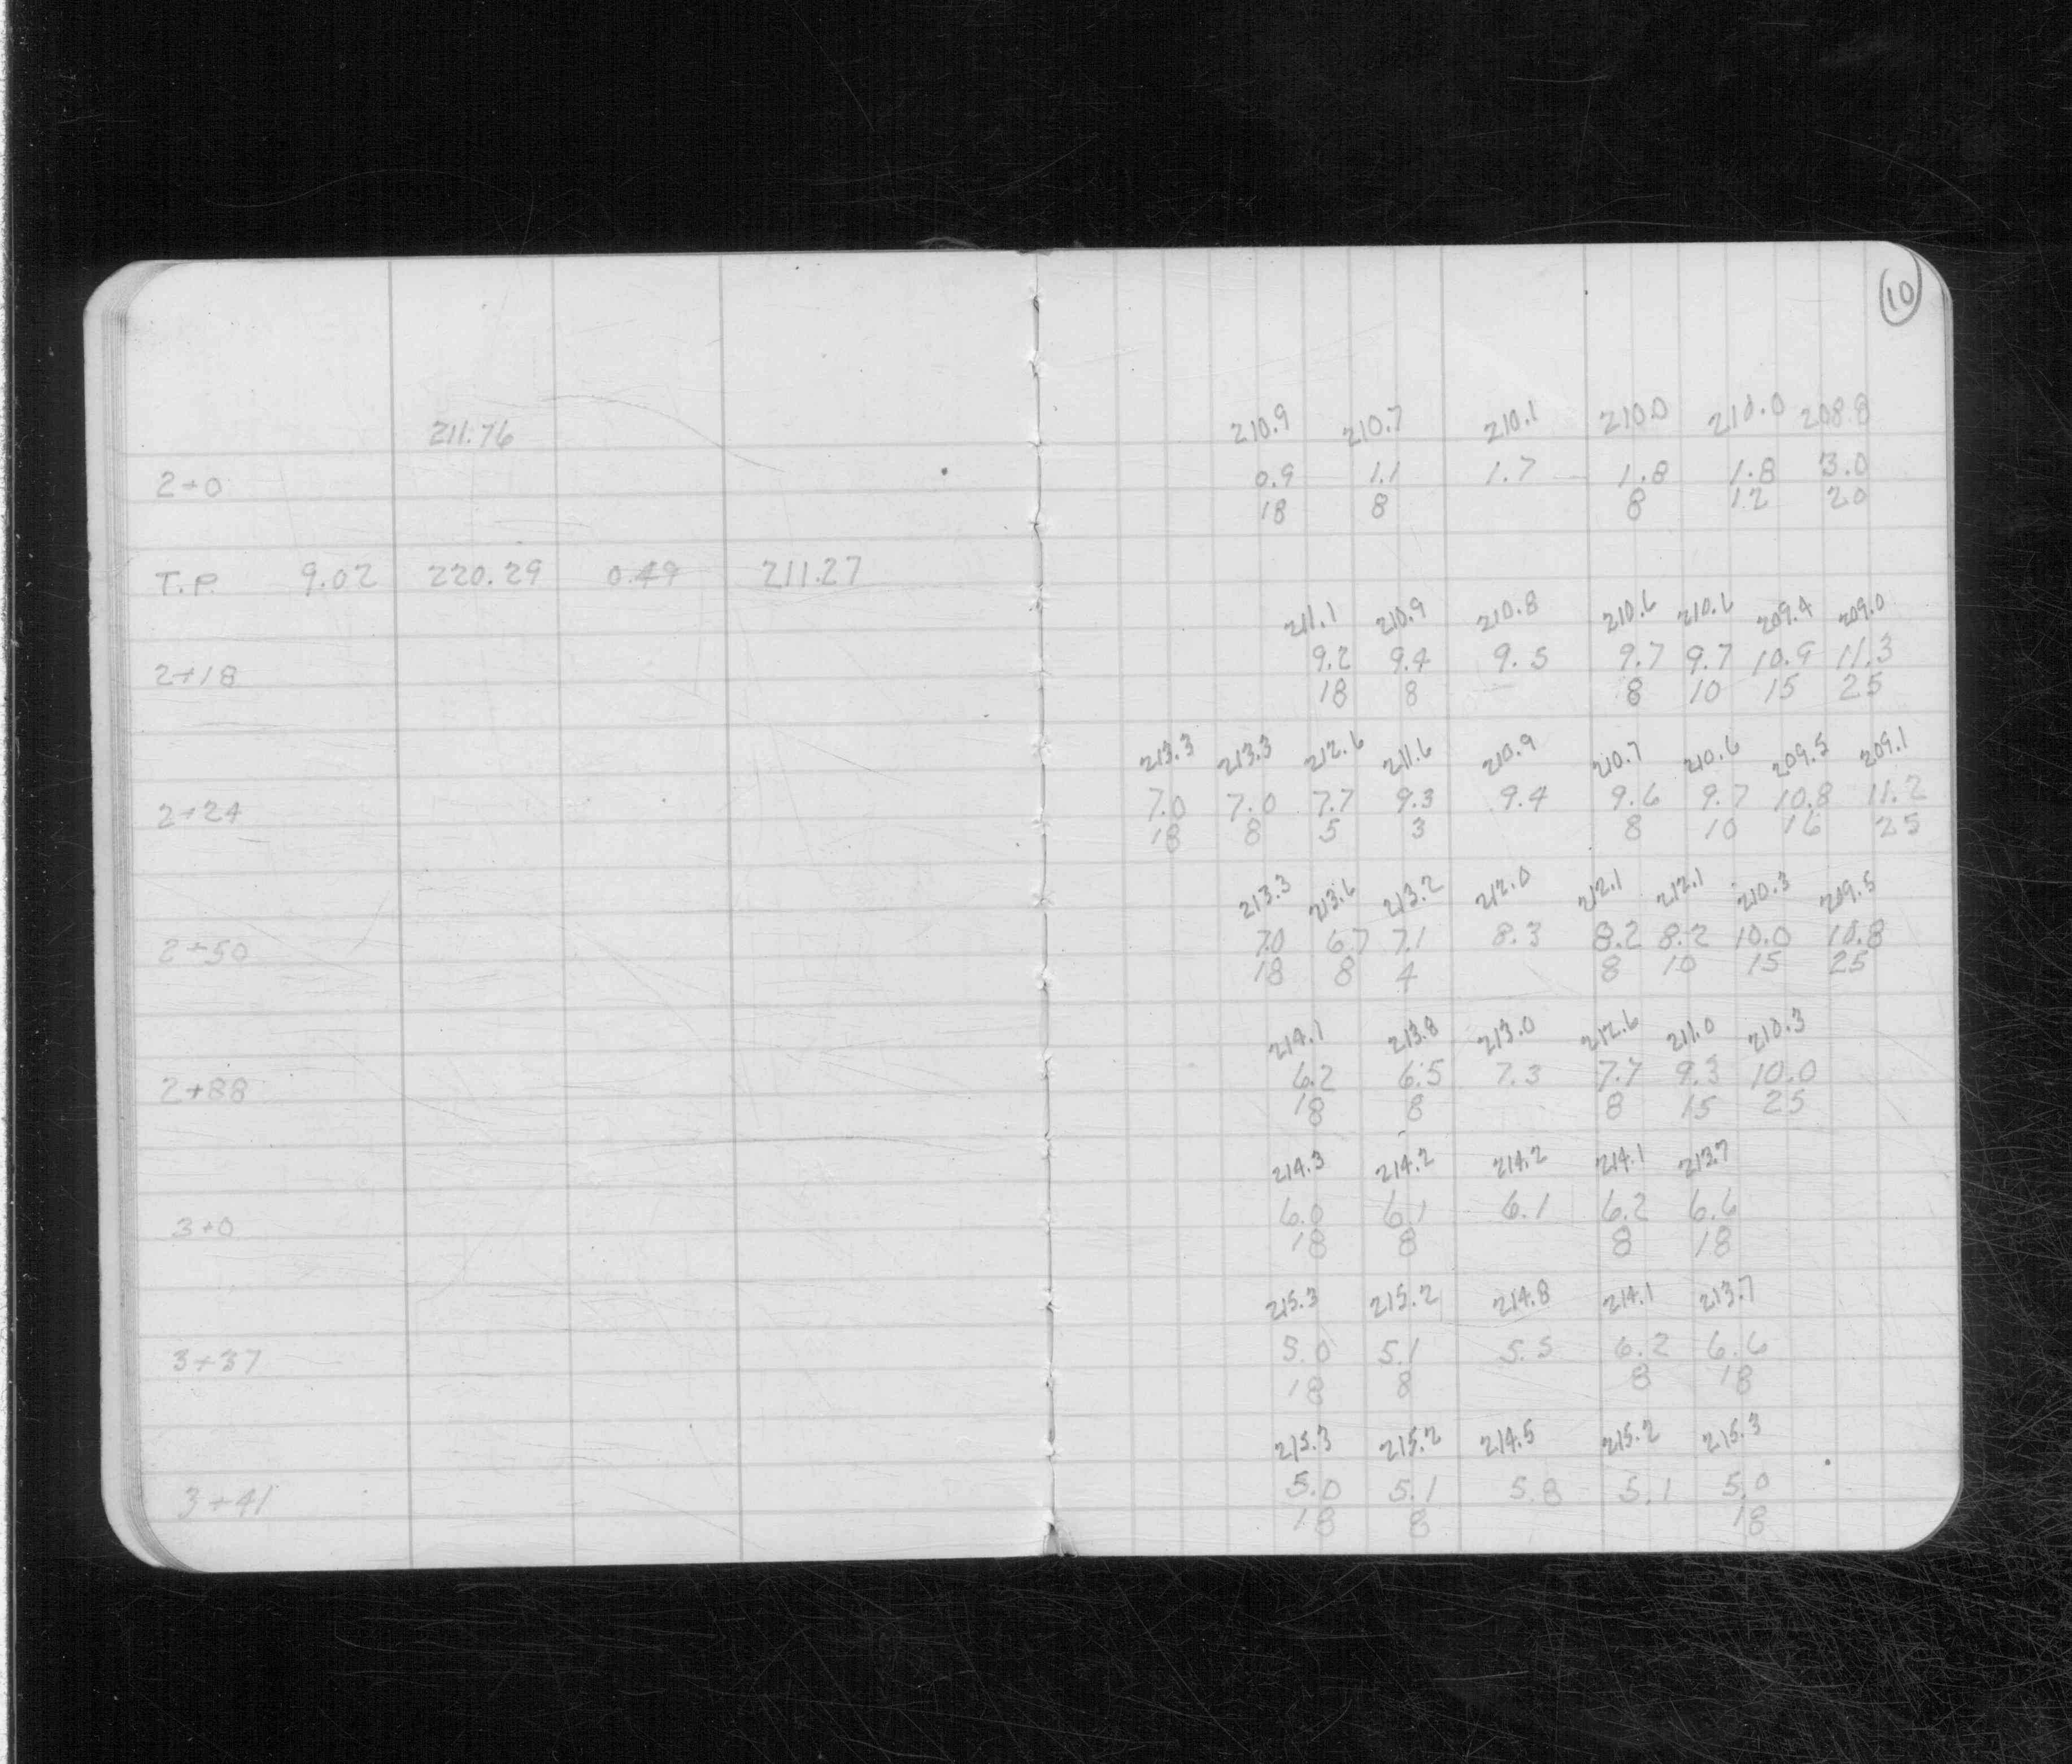 10
211.76 210.9 210.7 210.1 210.0 210.0 208.8
2+0 0.9 1.1 1.7 1.8 1.8 3.0
18 8 8 12 20
T.P. 9.02 220.29 0.49 211.27
211.1 210.9 210.8 210.6 210.6 209.4 209.0
2+18 9.2 9.4 9.5 9.7 9.7 10.9 11.3
18 8 8 10 15 25
213.3 213.3 212.6 211.6 210.9 210.7 210.6 209.5 209.1
2+24 7.0 7.0 7.7 9.3 9.4 9.6 9.7 10.8 11.2
18 8 5 3 8 10 16 25
213.3 213.6 213.2 212.0 212.1 212.1 210.3 209.5
2+50 7.0 6.7 7.1 8.3 8.2 8.2 10.0 10.8
18 8 4 8 10 15 25
214.1 213.8 213.0 212.6 211.0 210.3
2+88 6.2 6.5 7.3 7.7 9.3 10.0
18 8 8 15 25
214.3 214.2 214.2 214.1 213.7
3+0 6.0 6.1 6.1 6.2 6.6
18 8 8 18
215.3 215.2 214.8 214.1 213.7
3+37 5.0 5.1 5.5 6.2 6.6
18 8 8 18
215.3 215.2 214.5 215.2 215.3
3+41 5.0 5.1 5.8 5.1 5.0
18 8 18